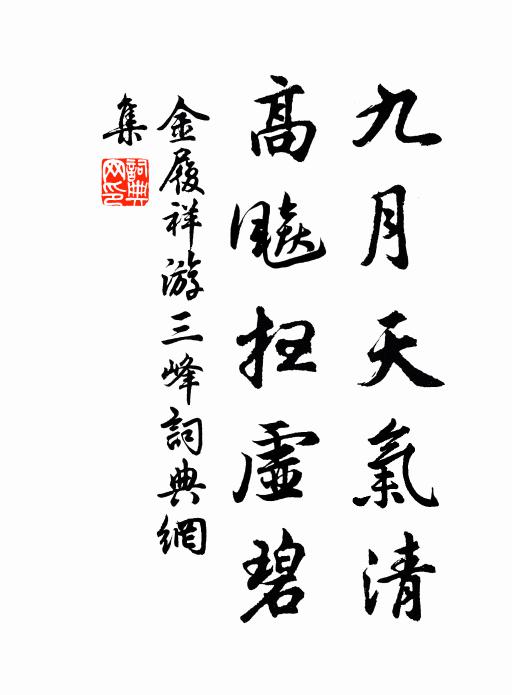 九月天氣清
高飈抂虛碧
金履祥游三峰詞典網
集
詞典
网印